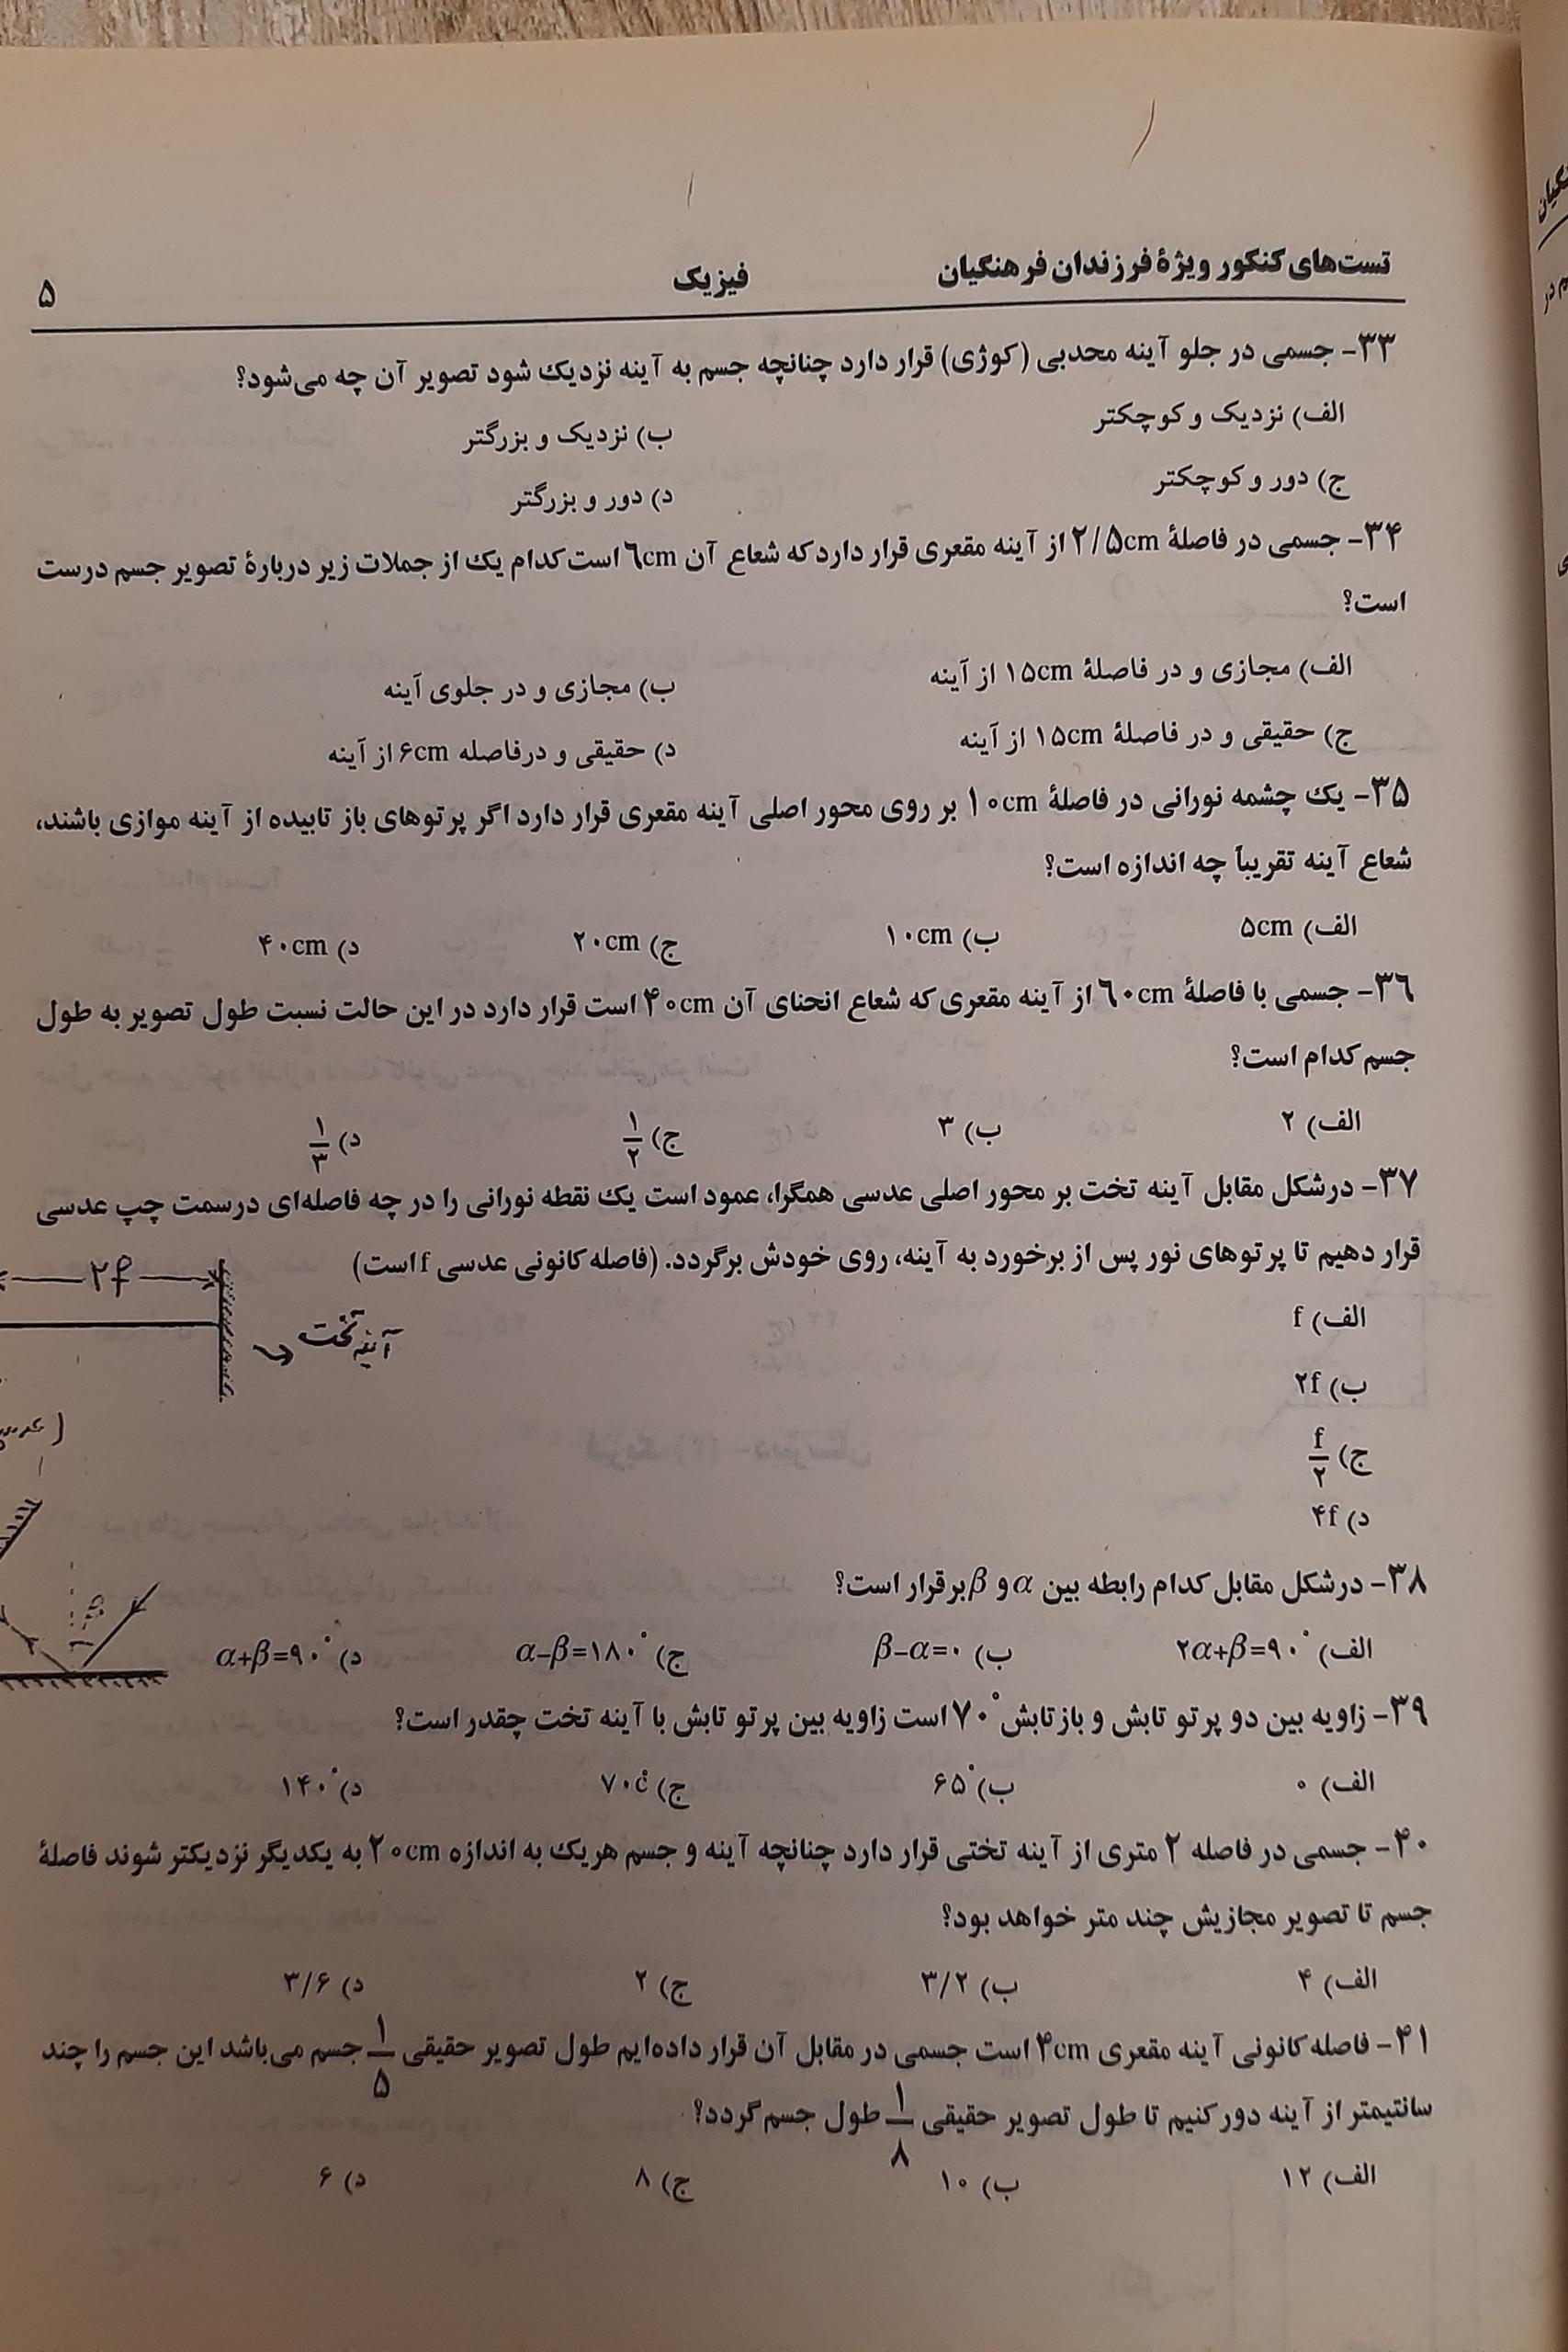 تست‌های کنکور ویژهٔ فرزندان فرهنگیان فیزیک ۵
۳۳- جسمی در جلو آینه محدبی (کوژی) قرار دارد چنانچه جسم به آینه نزدیک شود تصویر آن چه می‌شود؟
الف) نزدیک و کوچکتر ب) نزدیک و بزرگتر
ج) دور و کوچکتر د) دور و بزرگتر
۳۴- جسمی در فاصلهٔ ۲/۵cm از آینه مقعری قرار دارد که شعاع آن ۶cm است کدام یک از جملات زیر دربارهٔ تصویر جسم درست
است؟
الف) مجازی و در فاصلهٔ ۱۵cm از آینه ب) مجازی و در جلوی آینه
ج) حقیقی و در فاصلهٔ ۱۵cm از آینه د) حقیقی و درفاصله ۶cm از آینه
۳۵- یک چشمه نورانی در فاصلهٔ ۱۰cm بر روی محور اصلی آینه مقعری قرار دارد اگر پرتوهای باز تابیده از آینه موازی باشند،
شعاع آینه تقریباً چه اندازه است؟
الف) ۵cm ب) ۱۰cm ج) ۲۰cm د) ۴۰cm
۳۶- جسمی با فاصلهٔ ۶۰cm از آینه مقعری که شعاع انحنای آن ۴۰cm است قرار دارد در این حالت نسبت طول تصویر به طول
جسم کدام است؟
الف) ۲ ب) ۳ ج) ۱/۲ د) ۱/۳
۳۷- درشکل مقابل آینه تخت بر محور اصلی عدسی همگرا، عمود است یک نقطه نورانی را در چه فاصله‌ای درسمت چپ عدسی
قرار دهیم تا پرتوهای نور پس از برخورد به آینه، روی خودش برگردد. (فاصله کانونی عدسی f است)
۲f
الف) f
آینه تخت
ب) ۲f
ج) f/۲
د) ۴f
۳۸- درشکل مقابل کدام رابطه بین α و β برقرار است؟
الف) ۲α+β=۹۰° ب) β-α=۰ ج) α-β=۱۸۰° د) α+β=۹۰°
۳۹- زاویه بین دو پرتو تابش و بازتابش ۷۰° است زاویه بین پرتو تابش با آینه تخت چقدر است؟
الف) ۰ ب) ۶۵° ج) ۷۰c° د) ۱۴۰°
۴۰- جسمی در فاصله ۲ متری از آینه تختی قرار دارد چنانچه آینه و جسم هریک به اندازه ۲۰cm به یکدیگر نزدیکتر شوند فاصلهٔ
جسم تا تصویر مجازیش چند متر خواهد بود؟
الف) ۴ ب) ۳/۲ ج) ۲ د) ۳/۶
۴۱- فاصله کانونی آینه مقعری ۴cm است جسمی در مقابل آن قرار داده‌ایم طول تصویر حقیقی ۱/۵ جسم می‌باشد این جسم را چند
سانتیمتر از آینه دور کنیم تا طول تصویر حقیقی ۱/۸ طول جسم گردد؟
الف) ۱۲ ب) ۱۰ ج) ۸ د) ۶